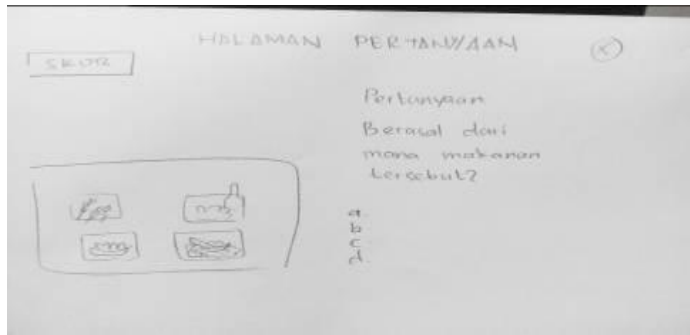 HALAMAN PERTANYAAN
X
SKOR
Pertanyaan
Berasal dari
mana makanan
tersebut?
a.
b
c.
d.